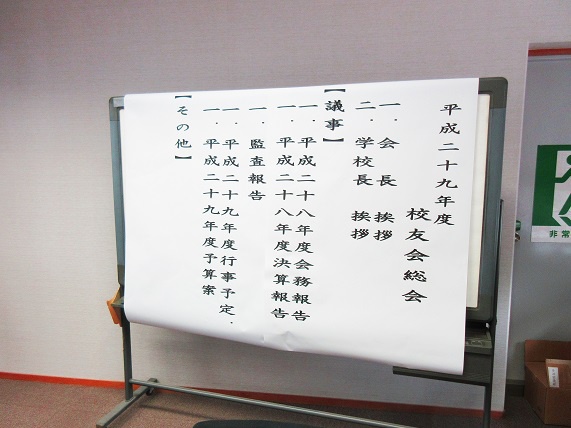 平成二十九年度
校友会総会
一．会長 挨拶
二．学校長 挨拶
【議事】
一．平成二十八年度会務報告
一．平成二十八年度決算報告
一．監査報告
一．平成二十九年度行事予定．
一．平成二十九年度予算案
【その他】
非常